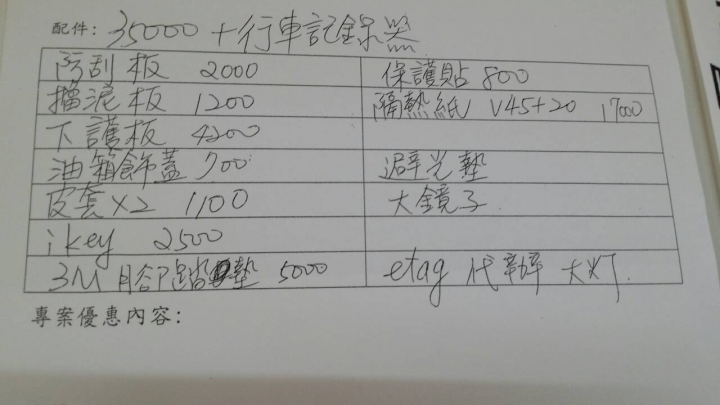 配件: 35000 + 行車記錄器
防刮板 2000 保護貼 800
擋泥板 1200 隔熱紙 V45+20 17000
下護板 4200
油箱飾蓋 700 避光墊
皮套 x2 1100 大鏡子
ikey 2500
3M 腳踏墊 5000 etag 代辦 大灯
專案優惠內容: